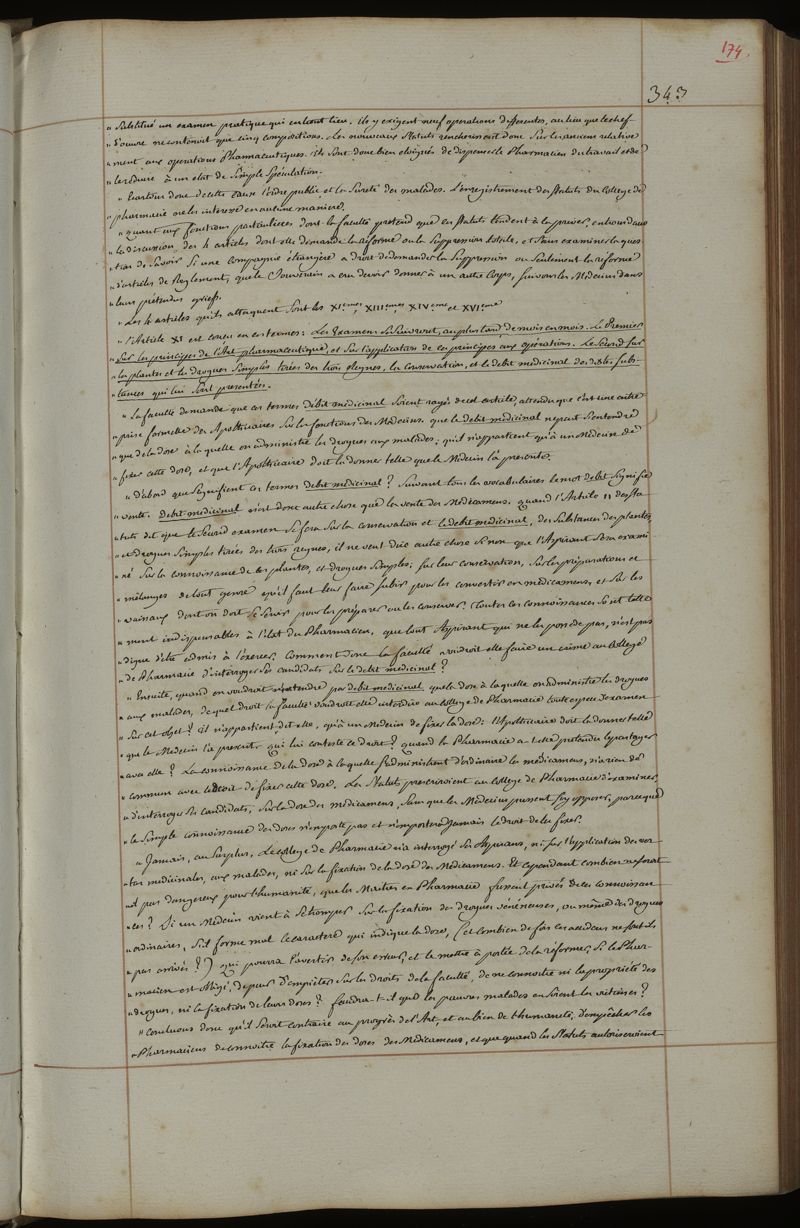 174.
343
" Substitué un examen pratique qui en tient lieu. ils y exigent neuf operations differentes, au lieu que le chef
" d'œuvre ne contenoit que cinq compositions. Les nouveaux Statuts rencherissent donc Sur les anciens relative
" ment aux operations Pharmaceutiques. ils Sont donc bien eloignés de dispenser le Pharmacien du travail et de
" le reduire à un etat de Simple Spéculation.
" Ecartons donc de cette cause l'ordre public et la Sureté des malades. L'enregistrement des Statuts du College de
" pharmacie ne les interesse en aucune maniere.
" quant aux fonctions particulieres dont la faculté pretend que ces Statuts tendent à la priver, entrons dans
" la discussion des 4 articles dont elle demande la réforme ou la Suppression totale, et Sans examiner la ques
" tion de Savoir Si une Compagnie étrangere a droit de demander la Suppression ou Seulement la réforme
" d'articles de Reglement, que le Souverain a cru devoir donner à un autre Corps, Suivons les Medecins dans
" leurs prétendus griefs.
" Les 4 articles qu'ils attaquent Sont les XIemes, XIIIemes, XIVeme et XVIeme
" l'Article XI est concu en ces termes: Les Examens Se Suivront, au plus tard, de mois en mois. Le Premier
" Sur les principes de l'Art pharmaceutique, et Sur l'application de ces principes aux opérations. Le Second Sur
" les plantes et les drogues Simples tirées des trois Regnes, la Conservation, et le debit medicinal desdites Subs-
" tances qui lui Sont presentées.
" La faculté demande que ces termes Debit medicinal Soient rayés de cet article, attendu que c'est une entre
" prise formelle des Apothicaires Sur les fonctions des Médecins, que le debit medicinal ne peut S'entendre
" que de la dose à la quelle on administre les drogues aux malades; qu'il n'appartient qu'à un Médecin de
" fixer cette dose, et que l'Apothicaire doit la donner telle que le Medecin l'a presente.
" D'abord que Signifient ces termes debit medicinal? Suivant tous les vocabulaires le mot debit Signifie
" vente. Debit medicinal n'est donc autre chose que la vente des Médicamens. quand l'Article 11 des Sta
" tuts dit que le Second examen Se fera Sur la conservation et le debit medicinal, des Substances des plantes,
" et drogues Simples tirées des trois regnes, il ne veut dire autre chose Si non que l'Aspirant Sera exami
" né Sur la connoissance de ces plantes, et drogues Simples; Sur leur conservation, Sur les préparations et
" mélanges de tout genre qu'il faut leur faire Subir pour les convertir en medicamens, et Sur les
" vaisseaux dont on doit Se Servir pour les préparer ou les conserver. Toutes ces connoissances Sont telle
" ment indispensables à l'état du Pharmacien, que tout Aspirant qui ne les possede pas, n'est pas
" digne d'être admis à l'exercer. Comment donc la faculté voudroit elle faire un crime au College
" de Pharmacie d'interroger Ses candidats Sur le debit medicinal?
" Ensuite, quand on voudroit entendre par debit medicinal que la dose à la quelle on administre les drogues
" aux malades, de quel droit la faculté voudroit elle interdire au College de Pharmacie toute espece d'examen
" Sur cet objet? Il n'appartient, dit elle, qu'à un Medecin de fixer la dose: l'Apothicaire doit la donner telle
" que le Medecin l'a prescrit. qui lui conteste ce Droit? quand la Pharmacie a t elle pretendu le partager
" avec elle? La connoissance de la dose à laquelle S'administrent d'ordinaire les médicamens, n'a rien de
" commun avec le droit de fixer cette dose. Les Statuts prescriroient au College de Pharmacie d'examiner
" d'interroger Ses candidats, Sur la dose des médicamens, Sans que les Medecins pussent S'y opposer, parce que
" la Simple connoissance des doses n'emporte pas et n'emportera Jamais le droit de les fixer.
" Jamais, au Surplus, le College de Pharmacie n'a interrogé Ses Aspirans, ni Sur l'application des ver
" tus medicinales, aux malades, ni Sur la fixation de la dose des Médicamens. Et cependant combien ne Seroit
" il pas dangereux pour l'humanité, que les Maitres en Pharmacie fussent privés de ces connoissan
" ces? Si un Medecin vient à Se tromper Sur la fixation des drogues vénéneuses, ou même des drogues
" ordinaires, S'il forme mal le caractere qui indique la dose, (et combien de fois ces accidens ne Sont ils
" pas arrivés?) qui pourra l'avertir de Son erreur, et le mettre à portée de la réformer, Si le Phar-
" macien est obligé, de peur d'empiéter Sur les droits de la faculté, de ne connoitre ni la propriété des
" drogues, ni la fixation de leurs doses? faudra-t-il que les pauvres malades en Soient les victimes?
" Concluons donc qu'il Seroit contraire au progrès de l'Art, et au bien de l'humanité, d'empêcher les
" Pharmaciens de connoitre la fixation des doses des Médicamens, et que quand les Statuts autoriseroient